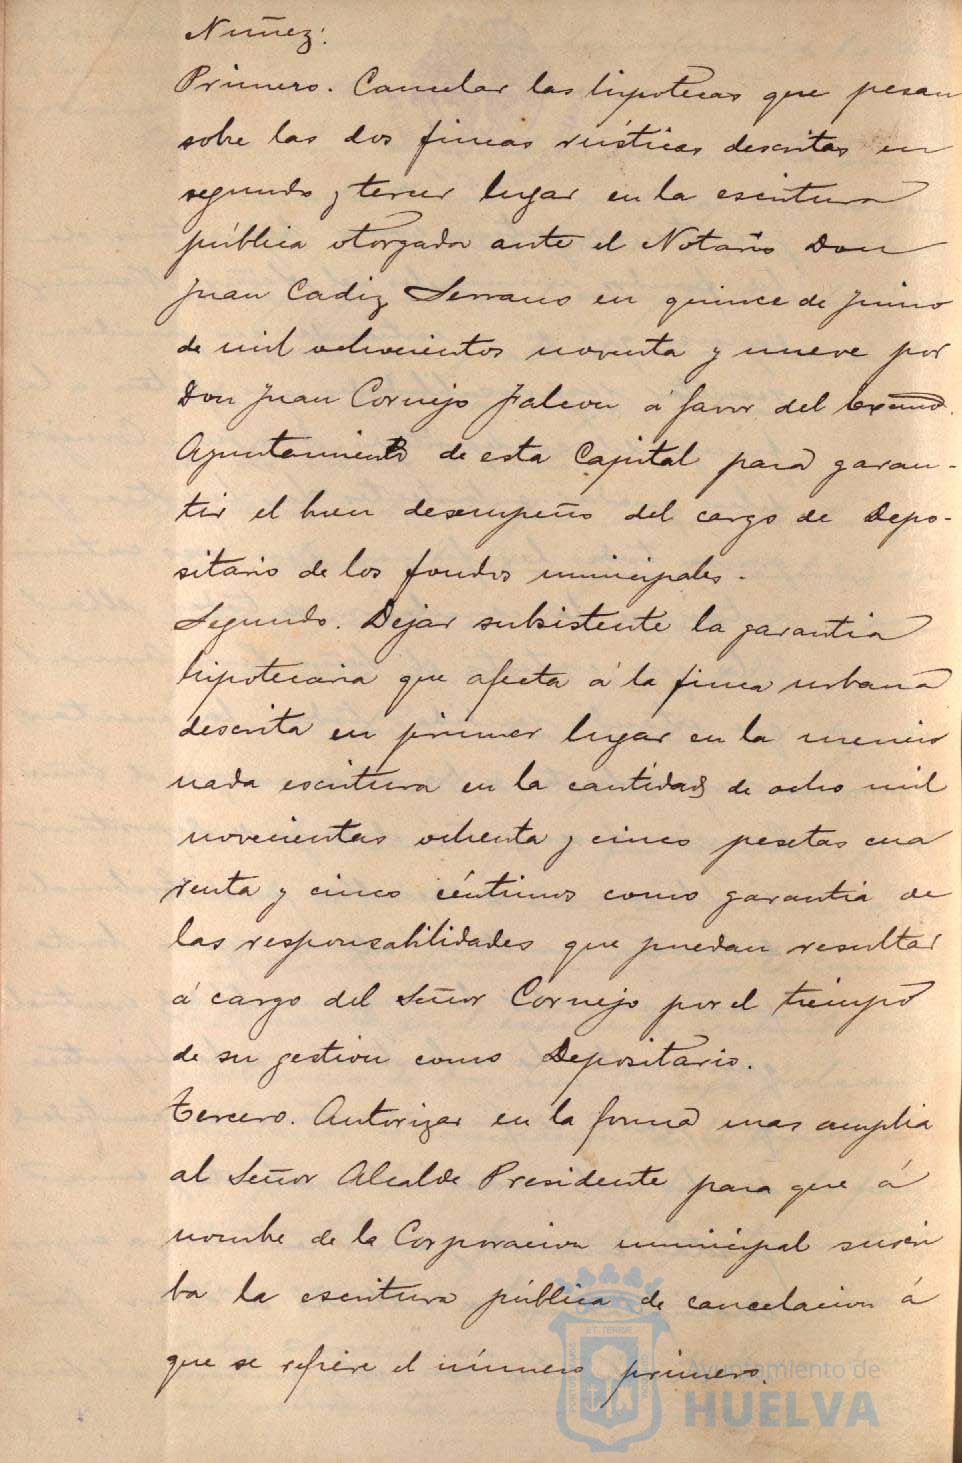 Nuñez:
Primero. Cancelar las hipotecas que pesan
sobre las dos fincas rústicas descritas en
segundo y tercer lugar en la escritura
pública otorgada ante el Notario Don
Juan Cadiz Serrano en quince de Junio
de mil ochocientos noventa y nueve por
Don Juan Cornejo Falcon á favor del Excmo.
Ayuntamiento de esta Capital para garan-
tir el buen desempeño del cargo de Depo-
sitario de los fondos municipales.
Segundo. Dejar subsistente la garantia
hipotecaria que afecta á la finca urbana
descrita en primer lugar en la mencio
nada escritura en la cantidad de ocho mil
novecientas ochenta y cinco pesetas cua
renta y cinco céntimos como garantia de
las responsabilidades que puedan resultar
á cargo del Señor Cornejo por el tiempo
de su gestion como Depositario.
Tercero. Autorizar en la forma mas amplia
al Señor Alcalde Presidente para que á
nombre de la Corporacion municipal suscri
ba la escritura pública de cancelacion á
que se refiere el número primero.
Ayuntamiento de
HUELVA